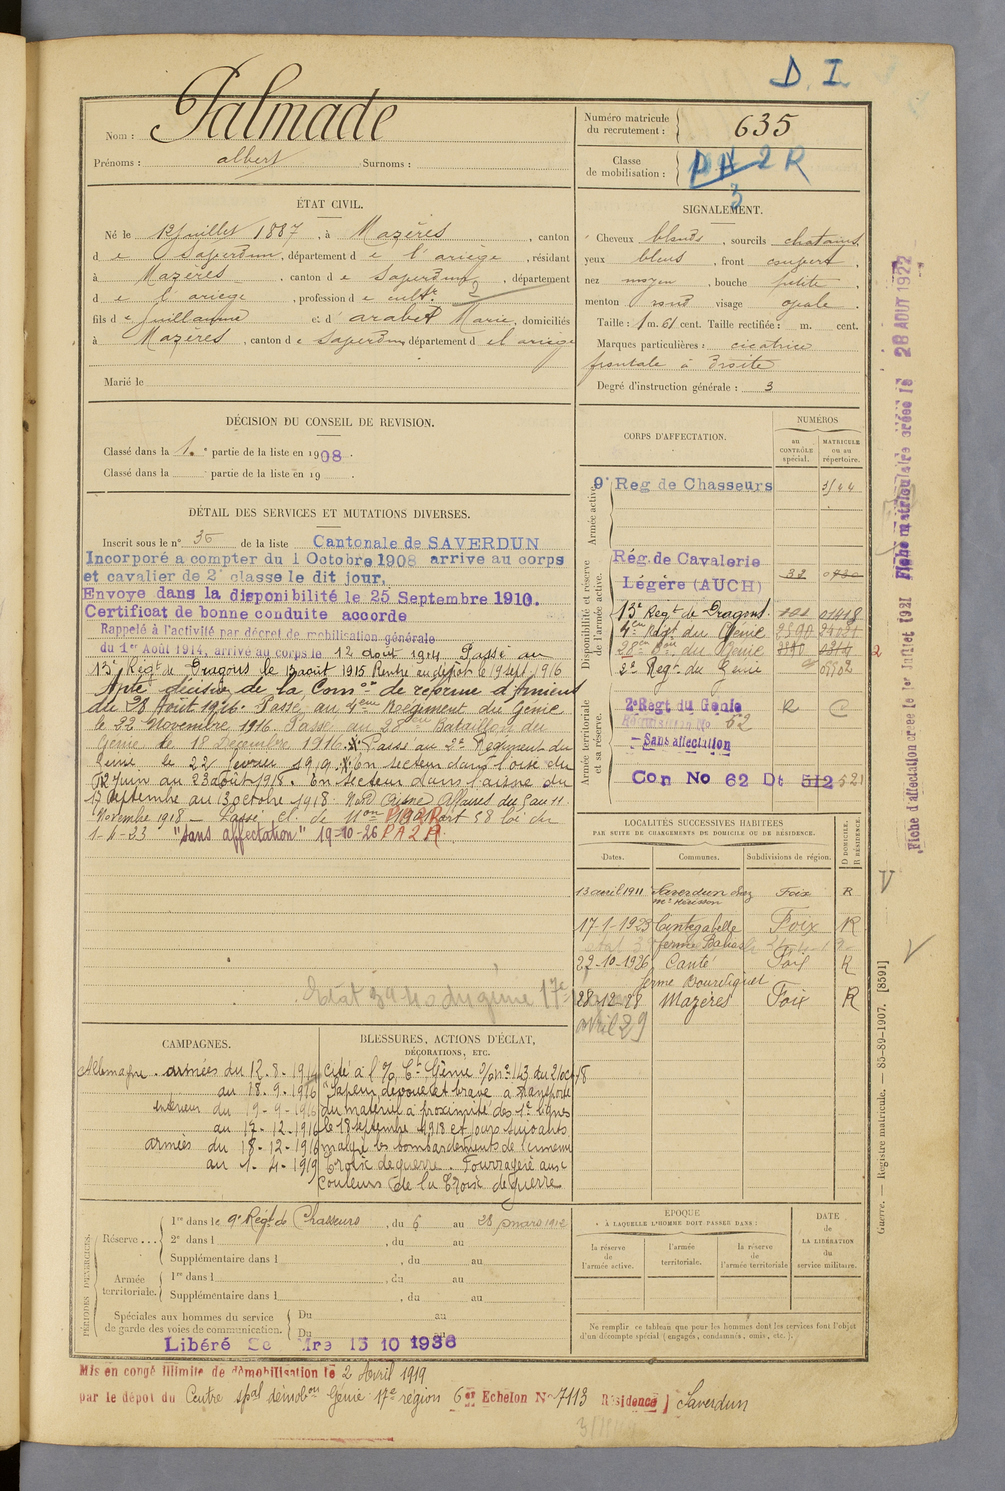 D. I.
Nom : Palmade
Prénoms : albert Surnoms :
Numéro matricule du recrutement : 635
Classe de mobilisation : PA 2 R
3
ÉTAT CIVIL.
Né le 12 Juillet 1887, à Mazères, canton
de Saverdun, département de l'ariège, résidant
à Mazères, canton de Saverdun, département
de l'ariège, profession de cultr
fils de Guillaume et d'arabet Marie, domiciliés
à Mazères, canton de Saverdun département de l'ariège
Marié le
SIGNALEMENT.
Cheveux blonds, sourcils chatains
yeux bleus, front couvert,
nez moyen, bouche petite,
menton rond visage ovale
Taille : 1 m. 61 cent. Taille rectifiée : m. cent.
Marques particulières : cicatrice
frontale à droite
Degré d'instruction générale : 3
DÉCISION DU CONSEIL DE REVISION.
Classé dans la 1re partie de la liste en 1908.
Classé dans la partie de la liste en 19
DÉTAIL DES SERVICES ET MUTATIONS DIVERSES.
Inscrit sous le n° 36 de la liste Cantonale de SAVERDUN
Incorporé a compter du 1 Octobre 1908 arrive au corps
et cavalier de 2e classe le dit jour,
Envoye dans la disponibilité le 25 Septembre 1910.
Certificat de bonne conduite accorde
Rappelé à l'activité par décret de mobilisation générale
du 1er Août 1914, arrivé au corps le 12 août 1914 Passé au
13e Régt de Dragons le 13 août 1915 Rentré au dépôt le 19 sept 1916
Apte décision de la Comon de réforme d'Amiens
du 28 Août 1916. Passé au 4eme Régiment du Génie
le 22 Novembre 1916. Passé au 28eme Bataillon du
Génie le 18 Décembre 1916. Passé au 2e Régiment du
Génie le 22 février 1919. En secteur dans l'oise du
12 Juin au 23 août 1918. En secteur dans l'aisne du
17 Septembre au 13 octobre 1918. Nord Aisne Affaires du 5 au 11
Novembre 1918 — Passé cl. de Mon art 58 loi du
1-4-23 "sans affectation" 19-10-26 PA2R
Etat 39 40 du génie 17e
CORPS D'AFFECTATION.
NUMÉROS
au CONTRÔLE spécial.
MATRICULE ou au répertoire.
Armée active.
9e Reg de Chasseurs
Disponibilité et réserve de l'armée active.
Rég. de Cavalerie
Légère (AUCH) 32
13e Régt de Dragons
4eme Régt du Génie
28e Bon du Génie
2e Regt du Génie
Armée territoriale et sa réserve.
2e Régt du Génie R C
Réquisition No 62
— Sans affectation
Con No 62 Dt 512 521
LOCALITÉS SUCCESSIVES HABITÉES
PAR SUITE DE CHANGEMENTS DE DOMICILE OU DE RÉSIDENCE.
Dates. Communes. Subdivisions de région. D DOMICILE. R RÉSIDENCE.
13 avril 1911 Saverdun chez Mr Hérisson Foix R
17-1-1923 Cintegabelle Foix R
ferme Bahas
22-10-1926 Canté Foix R
ferme Bourdiguet
28-12-28 Mazères Foix R
avril 29
CAMPAGNES.
Allemagne armées du 12.8.1914
au 18.9.1916
intérieur du 19-9-1916
au 17-12-1916
armées du 18-12-1916
au 1-4-1919
BLESSURES, ACTIONS D'ÉCLAT,
DÉCORATIONS, ETC.
Cité à l'O/ Ct Génie O/ n° 143 du 21 oct 18
"Sapeur dévoué et brave a transporté
du matériel à proximité des 1e lignes
le 18 septembre 1918 et jours suivants
malgré les bombardements de l'ennemi
Croix de guerre. Fourragère aux
Couleurs de la Croix de guerre
PÉRIODES D'EXERCICES.
Réserve... 1re dans le 9e Régt de Chasseurs, du 6 au 28 mars 1912
2e dans l , du au
Supplémentaire dans l , du au
Armée territoriale. 1re dans l , du au
Supplémentaire dans l , du au
Spéciales aux hommes du service de garde des voies de communication. Du au
Du au
Libéré 15 10 1936
ÉPOQUE
À LAQUELLE L'HOMME DOIT PASSER DANS :
la réserve de l'armée active.
l'armée territoriale.
la réserve de l'armée territoriale
DATE de LA LIBÉRATION du service militaire.
Ne remplir ce tableau que pour les hommes dont les services font l'objet
d'un décompte spécial (engagés, condamnés, omis, etc.).
Mis en congé illimité de démobilisation le 2 Avril 1919
par le dépot du Centre spal démobon Génie 17e région 6e Echelon N° 7113 Résidence Saverdun
Fiche d'affectation créée le 1er Juillet 1921
Fiche matriculaire créée le 28 AOUT 1922
Guerre. — Registre matricule. — 85-89-1907. [8591]